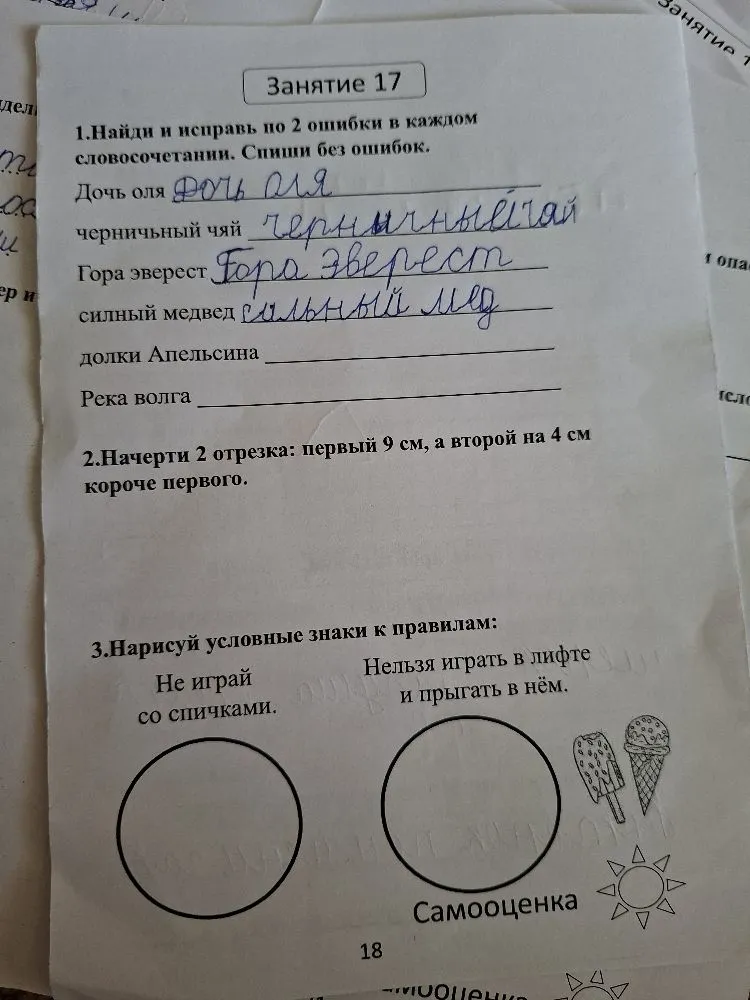 Занятие 17
1.Найди и исправь по 2 ошибки в каждом
словосочетании. Спиши без ошибок.
Дочь оля Дочь оля
черничьный чяй черничный чай
Гора эверест Гора Эверест
силный медвед сильный мед
долки Апельсина
Река волга
2.Начерти 2 отрезка: первый 9 см, а второй на 4 см
короче первого.
3.Нарисуй условные знаки к правилам:
Не играй
со спичками.
Нельзя играть в лифте
и прыгать в нём.
Самооценка
18